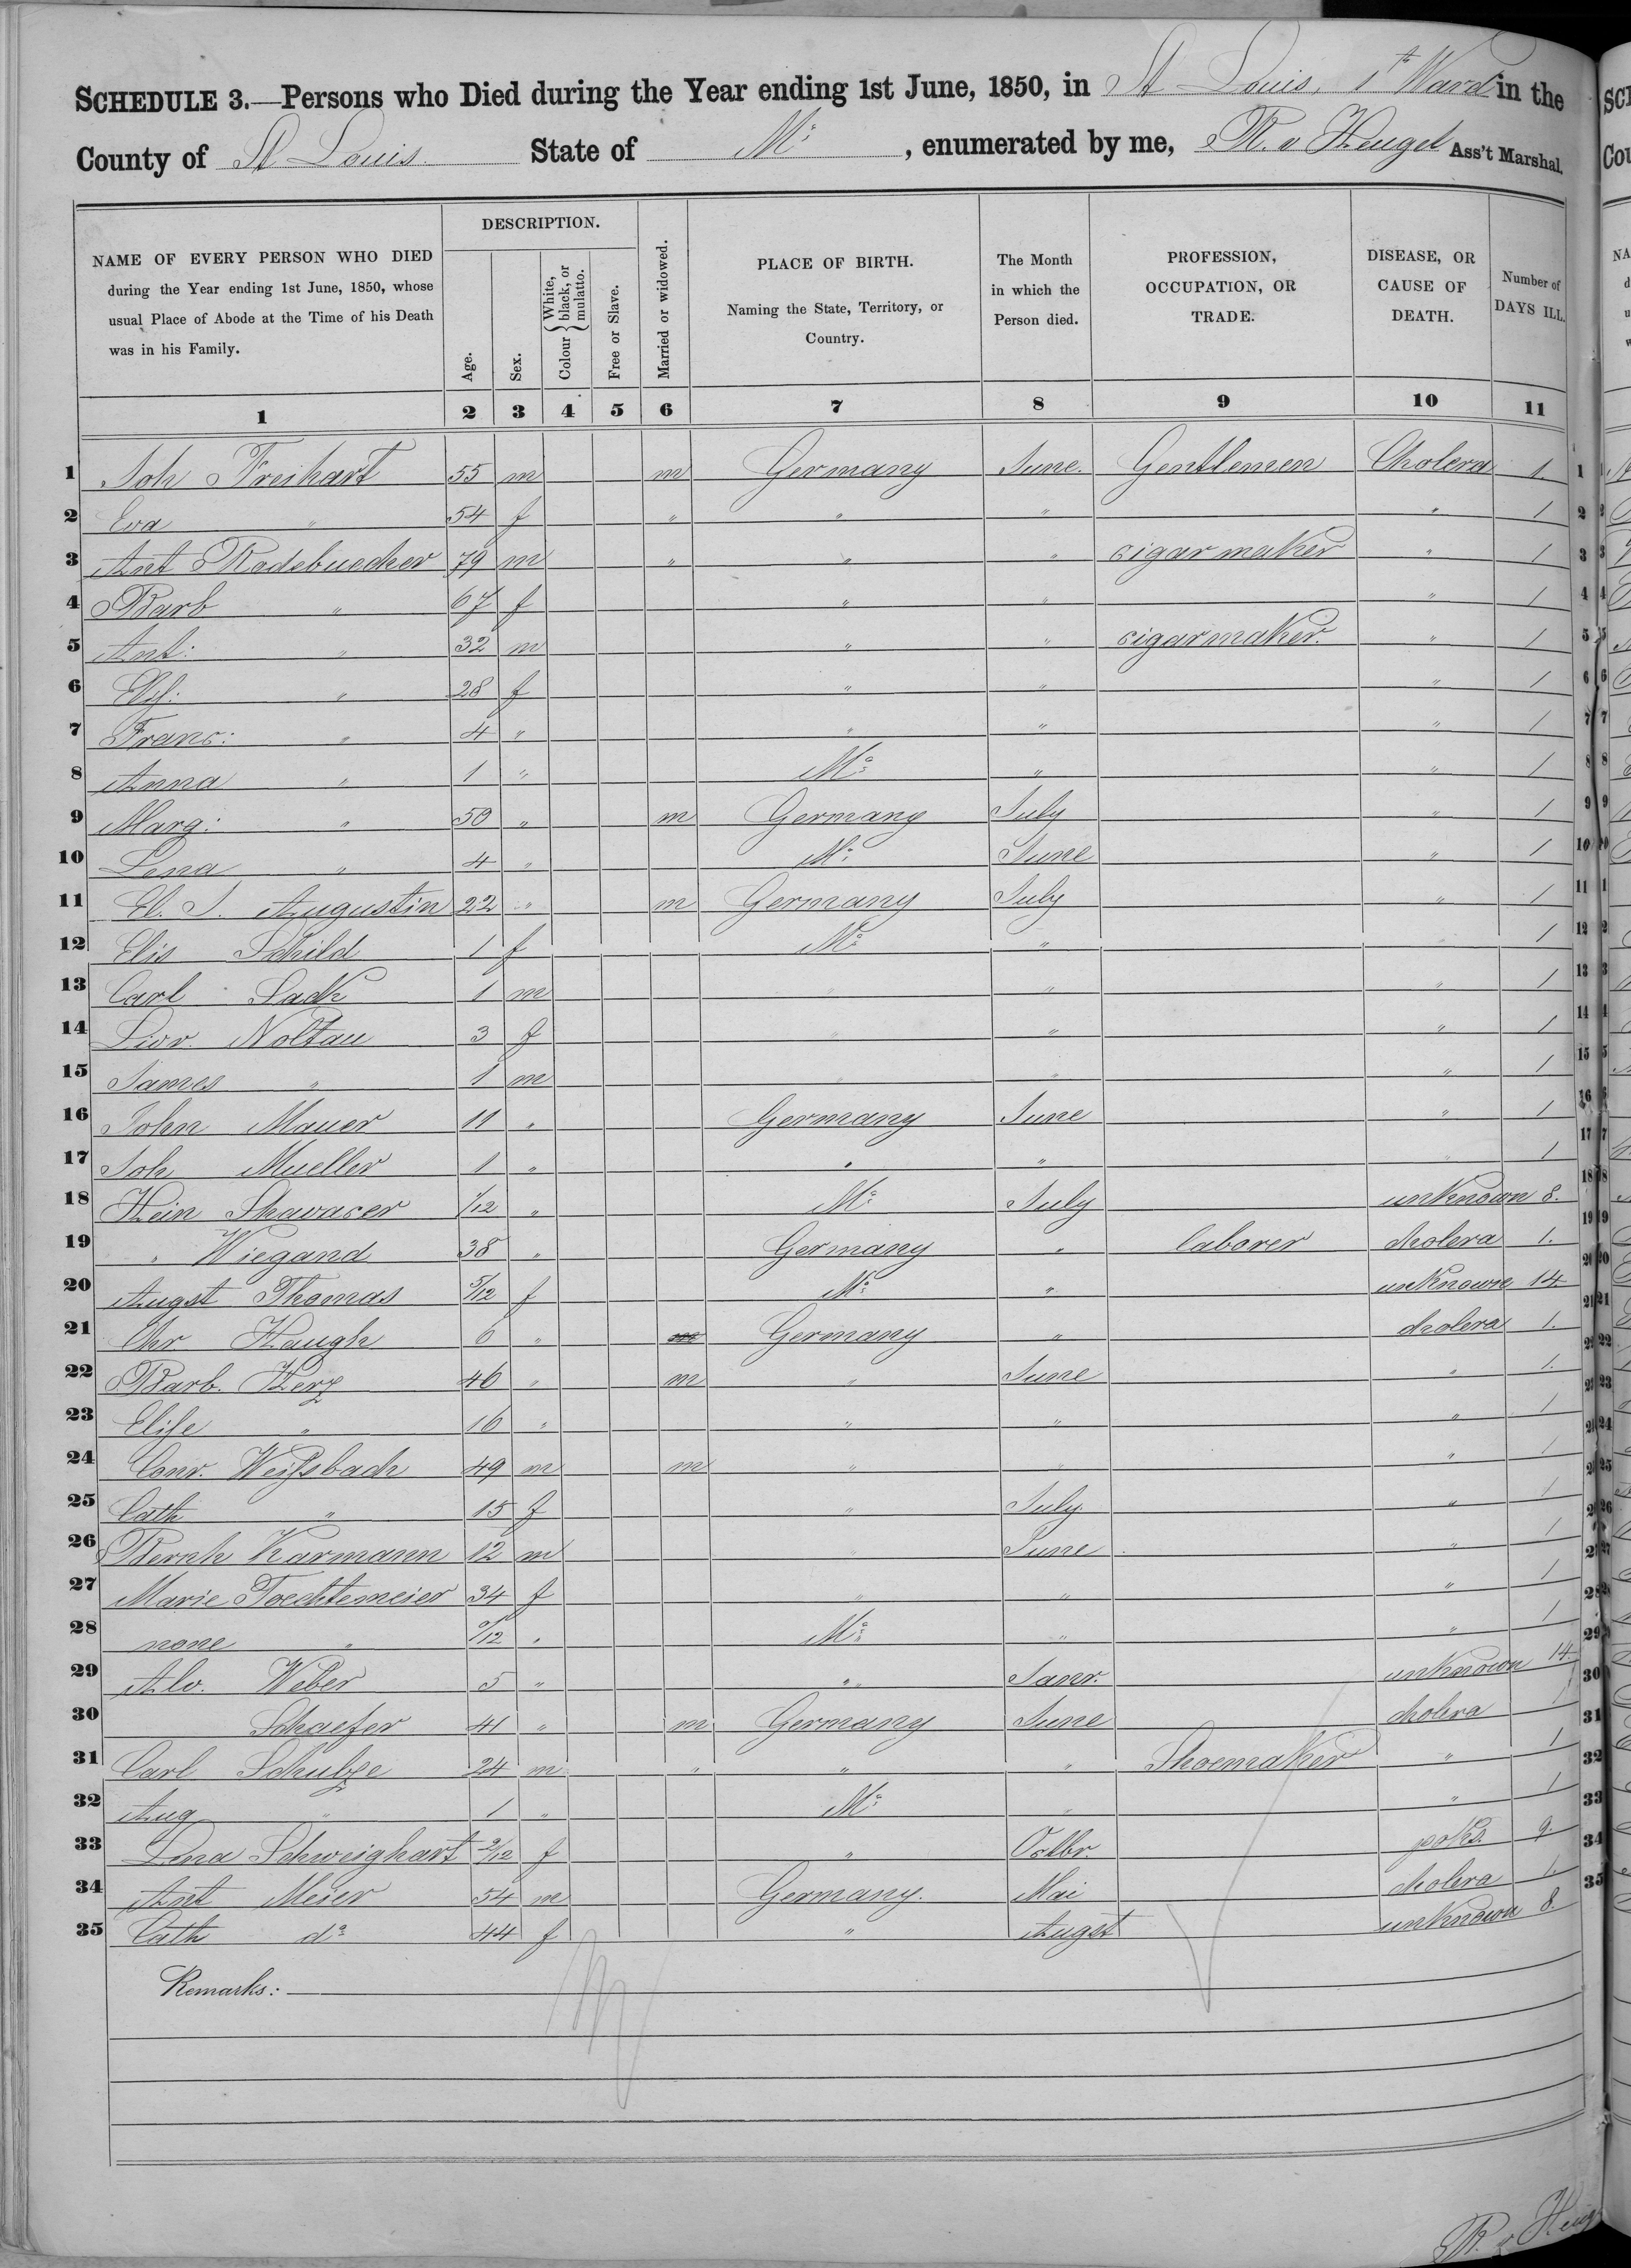 SCHEDULE 3.—Persons who Died during the Year ending 1st June, 1850, in St Louis, 1th Ward in the
County of St Louis. State of Mo: , enumerated by me, R. v Hengel Ass't Marshal.
NAME OF EVERY PERSON WHO DIED during the Year ending 1st June, 1850, whose usual Place of Abode at the Time of his Death was in his Family.
DESCRIPTION.
Age.
Sex.
Colour { White, black, or mulatto.
Free or Slave.
Married or widowed.
PLACE OF BIRTH. Naming the State, Territory, or Country.
The Month in which the Person died.
PROFESSION, OCCUPATION, OR TRADE.
DISEASE, OR CAUSE OF DEATH.
Number of DAYS ILL.
1 2 3 4 5 6 7 8 9 10 11
1 Joh Freihart 55 m m Germany June. Gentlemen Cholera 1. 1
2 Eva " 54 f " " " " 1 2
3 Ant Rodebuecher 79 m " " " cigar maker " 1 3
4 Barb " 67 f " " " 1 4
5 Ant: " 32 m " " cigarmaker. " 1 5
6 Elis: " 28 f " " " 1 6
7 Franc: " 4 " " " " 1 7
8 Anna " 1 " Mo: " " 1 8
9 Marg: " 50 " m Germany July " 1 9
10 Lena " 4 " Mo: June " 1 10
11 El. J. Augustin 22 " m Germany July " 1 11
12 Elis Schild 1 f Mo: " " 1 12
13 Carl Sack 1 m " " " 1 13
14 Noltau 3 f " " " 1 14
15 James " 1 m " " " 1 15
16 John Mauer 11 " Germany June " 1 16
17 Joh Mueller 1 " " " " 1 17
18 Hein Shwacer 1/12 " Mo: July unknown 8. 18
19 " Wiegand 38 " Germany " laborer cholera 1. 19
20 Augst Thomas 5/12 f Mo: " unknown 14 20
21 Chr Haugh 6 " m Germany " cholera 1. 21
22 Barb. Herz 46 " m " June " 1. 22
23 Elise " 16 " " " " 1 23
24 Conr. Weissbach 49 m m " " " 1
25 Cath " 15 f " July " 1
26 Bernh Karmann 12 m " June " 1
27 Marie Foechtemeier 34 f " " " 1
28 none " /12 " Mo: " " 1
29 Alv. Weber 5 " " Janr. unknown 14
30 Schaefer 41 " m Germany June cholera 1
31 Carl Schulze 24 m " " " Shoemaker " 1
32 Aug " 1 " Mo: " " 1
33 Lena Schweighart 2/12 f " Octbr. poks. 9.
34 Ant Meier 54 m Germany. Mai cholera 1.
35 Cath do 44 f " Augst unknown 8.
Remarks:
R. v Heng